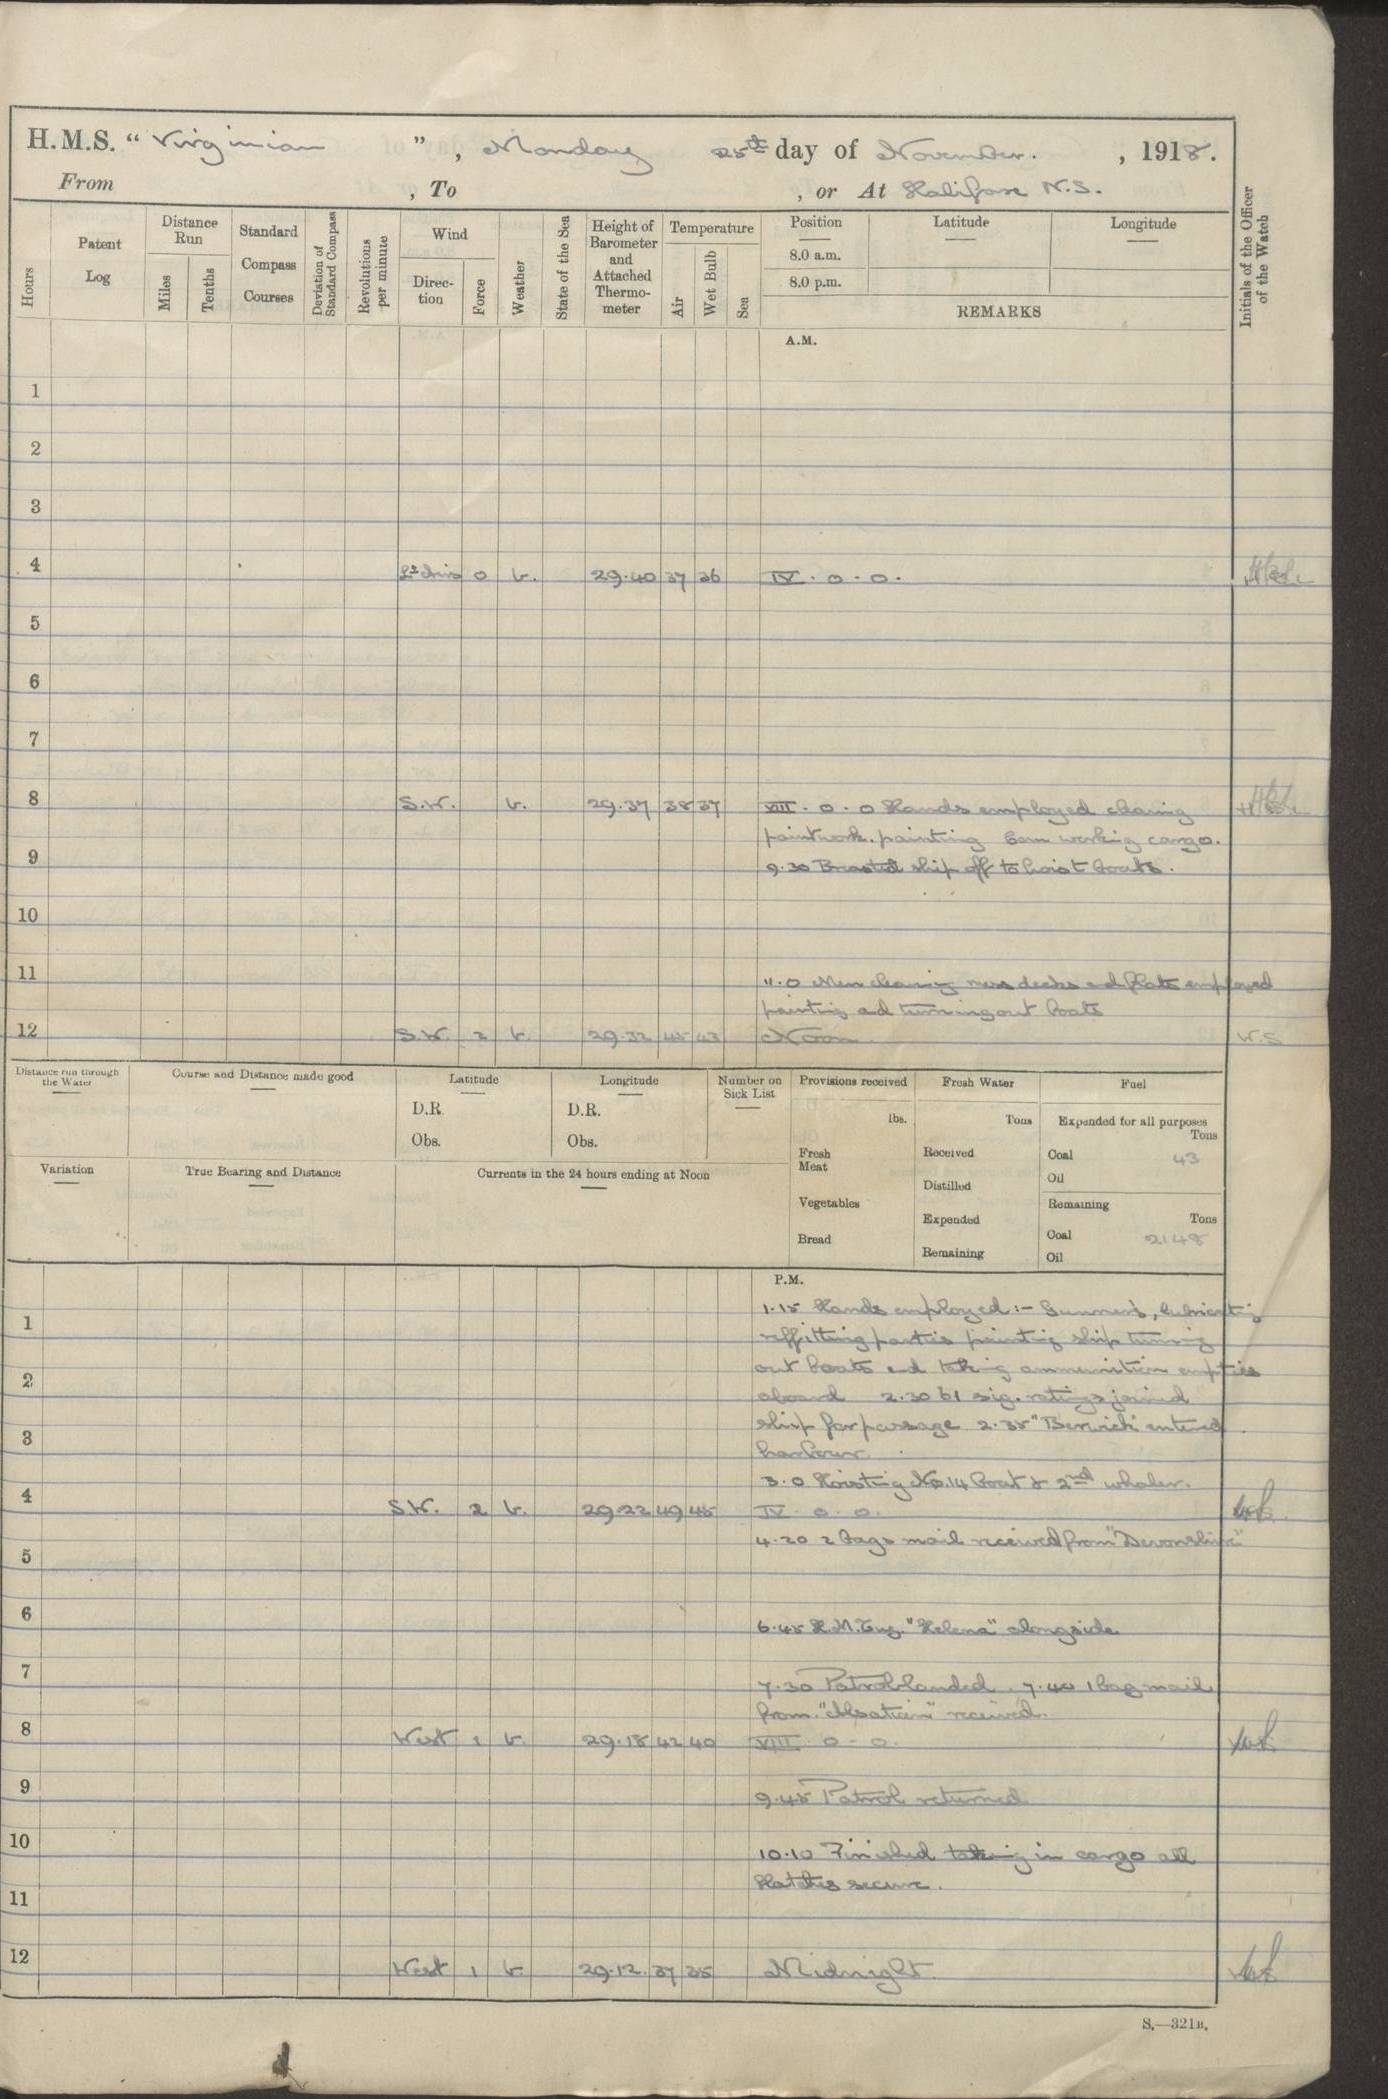 H.M.S. “ Virginian ” , Monday 25th day of November. , 1918.
From , To , or At Halifax N.S.
Hours
Patent Log
Distance Run
Miles
Tenths
Standard Compass Courses
Deviation of Standard Compass
Revolutions per minute
Wind
Direc-tion
Force
Weather
State of the Sea
Height of Barometer and Attached Thermo-meter
Temperature
Air
Wet Bulb
Sea
Position
8.0 a.m.
8.0 p.m.
Latitude
Longitude
REMARKS
Initials of the Officer of the Watch
A.M.
1
2
3
4 Lt airs 0 b. 29.40 37 36 IV . 0 . 0 .
5
6
7
8 S.W. b. 29.37 38 37 VIII . 0 . 0 Hands employed cleaning
paintwork. painting working cargo.
9
9.30 Breasted ship off to hoist boats.
10
11
11.0 Men cleaning mess decks and flats employed
painting and turning out boats
12 S.W. 2 b. 29.32 45 43 Noon W.S
Distance run through the Water
Course and Distance made good
Latitude
D.R.
Obs.
Longitude
D.R.
Obs.
Number on Sick List
Provisions received
lbs.
Fresh Meat
Vegetables
Bread
Fresh Water
Tons
Received
Distilled
Expended
Remaining
Fuel
Expended for all purposes
Tons
Coal 43
Oil
Remaining
Tons
Coal 2148
Oil
Variation
True Bearing and Distance
Currents in the 24 hours ending at Noon
P.M.
1.15 Hands employed :- Gunners, lubricating
1
reffitting parties painting ship turning
out boats and taking ammunition empties
2
aboard 2.30 61 sig. ratings joined
ship for passage 2.35 "Berwick" entered
3
harbour.
3.0 Hoisting No.14 boat & 2nd whaler.
4 S.W. 2 b. 29.22 49 45 IV . 0 . 0.
4.20 2 bags mail received from "Devonshire"
5
6
6.45 H.M. Tug. "Helena" alongside
7
7.30 Patrol landed. 7.40 1 bag mail
from "Alsatian" received.
8 West 1 b. 29.18 42 40 VIII . 0 . 0.
9
9.45 Patrol returned
10
10.10 Finished taking in cargo all
hatches secure.
11
12 West 1 b. 29.12 37 35 Midnight.
S.—321B.